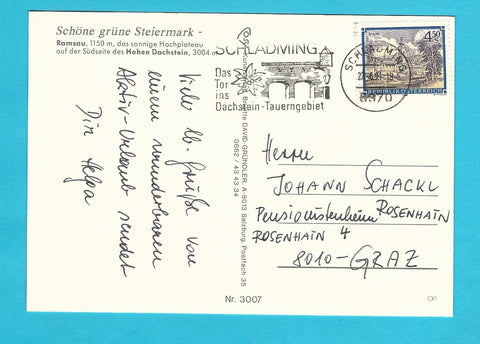 Schöne grüne Steiermark -
Ramsau, 1150 m, das sonnige Hochplateau
auf der Südseite des Hohen Dachstein, 3004 m
Viele lb. Grüße von
einem wunderbaren
Aktiv-Urlaub sendet
Dir Helga
Brigitte DAVID-GRÜNDLER, A-5013 Salzburg, Postfach 35
0662/43 43 34
SCHLADMING
Das
Tor
ins
Dachstein-Tauerngebiet
SCHLADMING
8970
4.50
REPUBLIK ÖSTERREICH
Herrn
JOHANN SCHACKL
Pensionistenheim ROSENHAIN
ROSENHAIN 4
8010-GRAZ
Nr. 3007